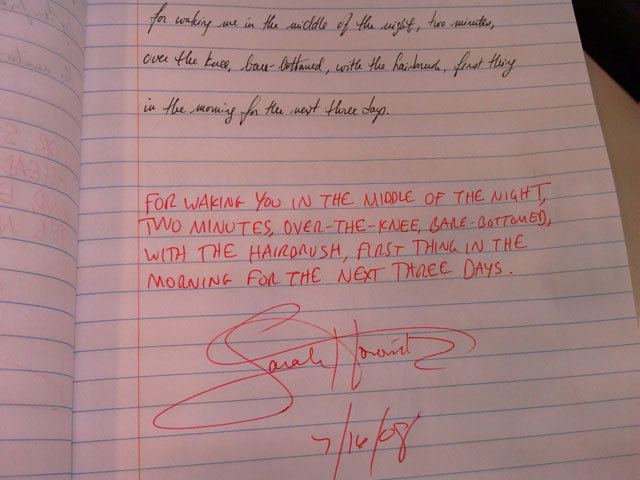 for waking me in the middle of the night, two minutes,
over the knee, bare-bottomed, with the hairbrush, first thing
in the morning for the next three days.
FOR WAKING YOU IN THE MIDDLE OF THE NIGHT,
TWO MINUTES, OVER-THE-KNEE, BARE-BOTTOMED,
WITH THE HAIRBRUSH, FIRST THING IN THE
MORNING FOR THE NEXT THREE DAYS.
Sarah
7/16/08